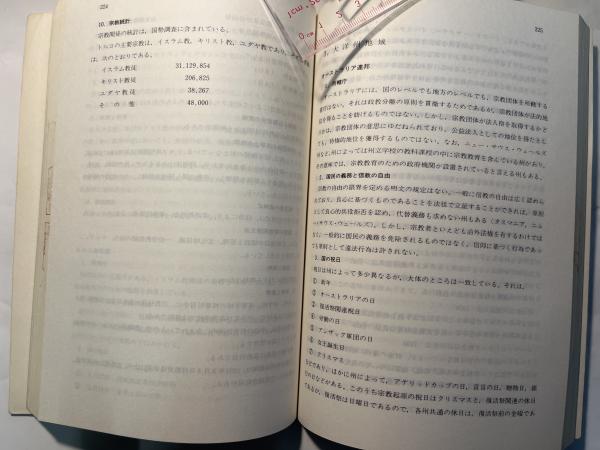 224
10. 宗教統計
宗教関係の統計は,国勢調査に含まれている。
トルコの主要宗教は,イスラム教,キリスト教,ユダヤ教であり,
は,次のとおりである。
イスラム教徒 31,129,854
キリスト教徒 206,825
ユダヤ教徒 38,267
その他 48,000
225
大洋州地域
オーストラリア連邦
オーストラリアには,国のレベルでも地方のレベルでも,宗教団体を所轄する
官庁はない。それは政教分離の原則を貫徹するためであるが,宗教団体が法的地
位を得ることを妨げるものではない。しかし,宗教団体が法人格を取得するかど
うかは,宗教団体の意思にゆだねられており,公益法人としての地位を得たとし
ても,特権的地位を獲得するものではない。なお,ニュー・サウス・ウェールズ
州など,州によっては州立学校の教科課程の中に宗教教育を含んでいる州があり,
の意味では,宗教教育のための政府機関が設置されていると言える州もある。
2. 国民の義務と信教の自由
宗教の自由の限界を定める明文の規定はない。一般に信教の自由は広く認めら
れており,良心に基づくものであることを法廷で立証することができれば,原則
として良心的兵役拒否を認め,代替義務も求めない州もある(タスマニア,ニュ
ー・サウス・ウェールズ)。しかし,宗教者といえども治外法権を有するわけでは
なく,一般的に国民の義務を免除されるものではなく,信仰に基づく行為であっ
ても原則として違法行為は許されない。
3. 国の祝日
祝日は州によって多少異なるが,大体のところは一致している。それは,
① 新年
② オーストラリアの日
③ 復活祭関連祝日
④ 労働の日
⑤ アンザック軍団の日
⑥ 女王誕生日
⑦ クリスマス
などであり,ほかに州によって,アデライドカップの日,盲目の日,贈物日,銀
行の日などがある。このうち宗教起源の祝日はクリスマスと,復活祭関連の休日
であるが,復活祭は日曜日であるので,各州共通の休日は,復活祭前の金曜であ